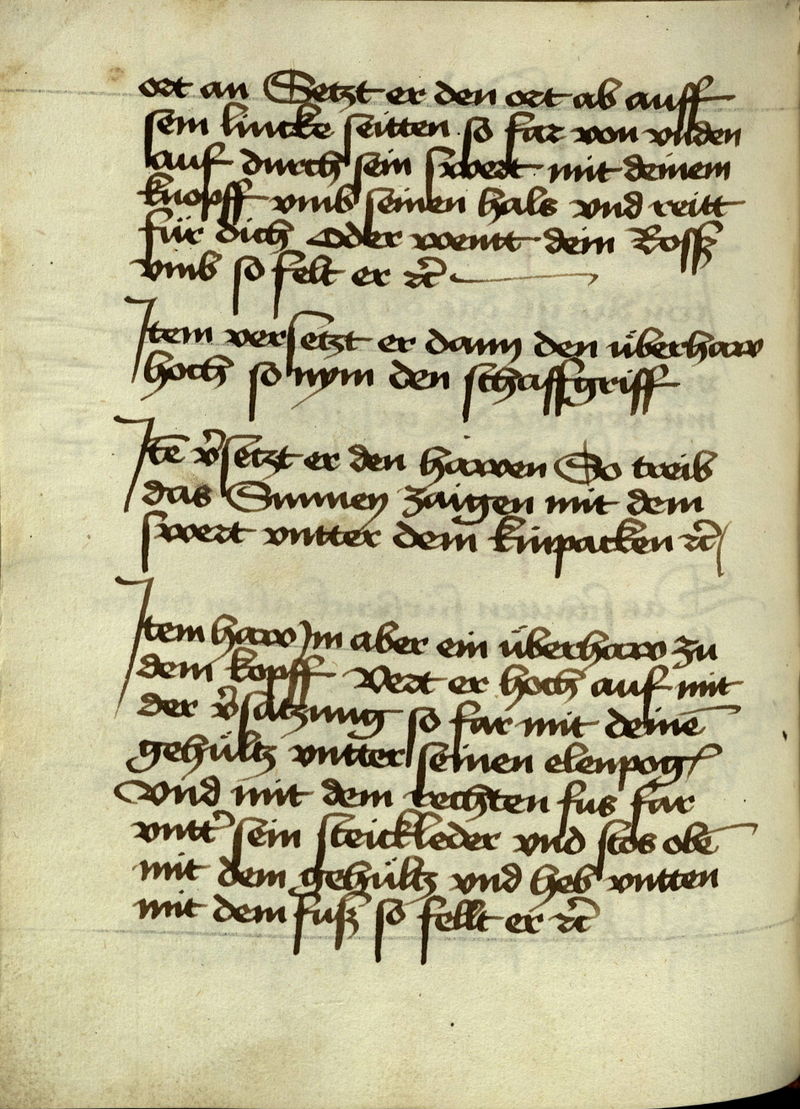 ort an Setzt er den ort ab auff
sein lincke seitten so far von vnden
auf durch sein swert mit deinem
knopff vmb seinen hals vnd reitt
für dich Oder wentt dein Rossz
vmb so felt er ꝛc̃
Item versetzt er dann den überhaw
hoch so nym den schaffgriff
Itē v̾setzt er den hawen So treib
das Sunnen zaigen mit dem
swert vntter dem kinpacken ꝛc̃
Item haw Im aber ein überhaw zu
dem kopff Vert er hoch auf mit
der v̾satzung so far mit deinē
gehültz vntter seinen elenpogn̄
Vnd mit dem rechten fus far
vntt̾ sein steickleder vnd stos obē
mit dem gehültz vnd heb vntten
mit dem fusz so fellt er ꝛc̃